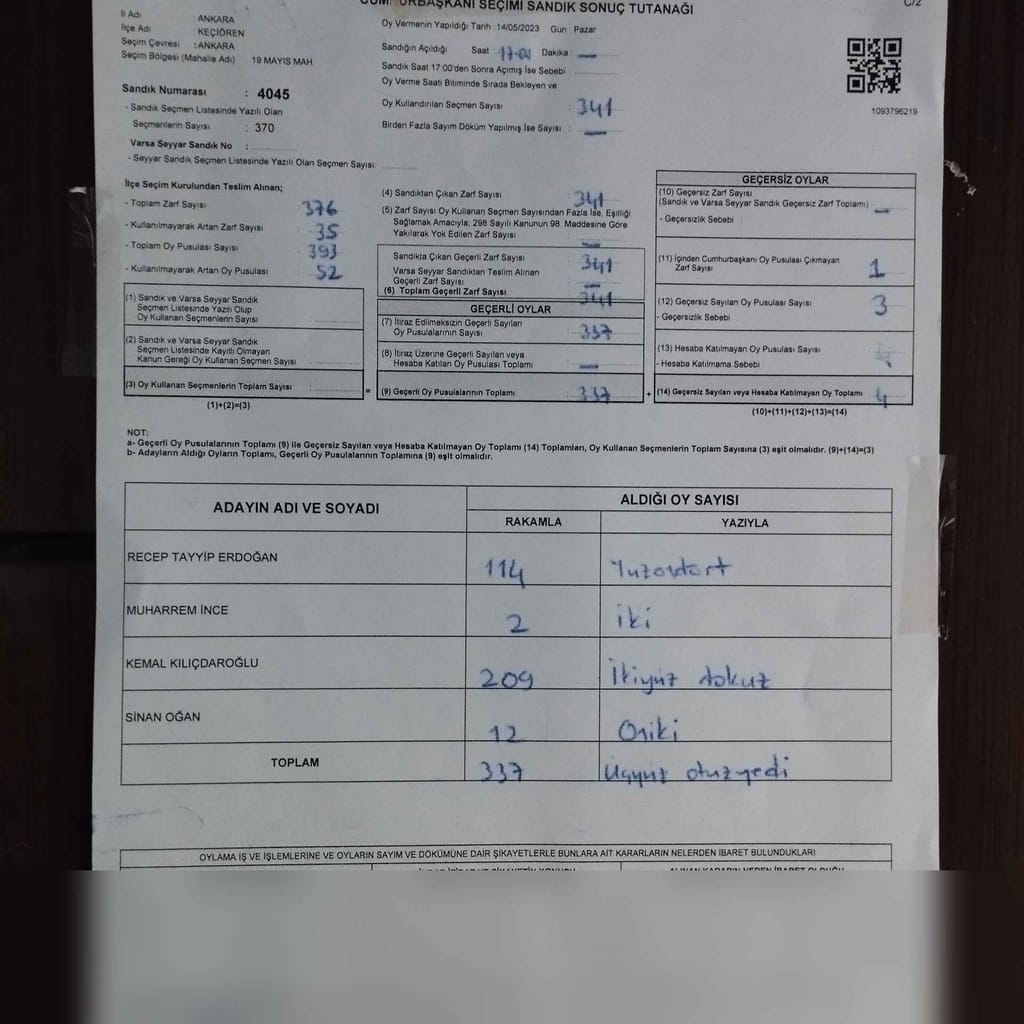 CUMHURBAŞKANI SEÇİMİ SANDIK SONUÇ TUTANAĞI
C/2
İl Adı ANKARA
İlçe Adı KEÇİÖREN
Seçim Çevresi : ANKARA
Seçim Bölgesi (Mahalle Adı) 19 MAYIS MAH
Sandık Numarası : 4045
- Sandık Seçmen Listesinde Yazılı Olan
Seçmenlerin Sayısı : 370
Varsa Seyyar Sandık No :
- Seyyar Sandık Seçmen Listesinde Yazılı Olan Seçmen Sayısı:
Oy Vermenin Yapıldığı Tarih : 14/05/2023 Gün : Pazar
Sandığın Açıldığı Saat : 17:00 Dakika : —
Sandık Saat 17:00'den Sonra Açımış İse Sebebi
Oy Verme Saati Bitiminde Sırada Bekleyen ve
Oy Kullandırılan Seçmen Sayısı : 341
Birden Fazla Sayım Döküm Yapılmış İse Sayısı : —
1093796219
İlçe Seçim Kurulundan Teslim Alınan;
- Toplam Zarf Sayısı 376
- Kullanılmayarak Artan Zarf Sayısı 35
- Toplam Oy Pusulası Sayısı 393
- Kullanılmayarak Artan Oy Pusulası 52
(1) Sandık ve Varsa Seyyar Sandık
Seçmen Listesinde Yazılı Olup
Oy Kullanan Seçmenlerin Sayısı
(2) Sandık ve Varsa Seyyar Sandık
Seçmen Listesinde Kayıtlı Olmayan
Kanun Gereği Oy Kullanan Seçmen Sayısı
(3) Oy Kullanan Seçmenlerin Toplam Sayısı =
(1)+(2)=(3)
(4) Sandıktan Çıkan Zarf Sayısı 341
(5) Zarf Sayısı Oy Kullanan Seçmen Sayısından Fazla İse, Eşitliği
Sağlamak Amacıyla, 298 Sayılı Kanunun 98. Maddesine Göre
Yakılarak Yok Edilen Zarf Sayısı —
Sandıkta Çıkan Geçerli Zarf Sayısı 341
Varsa Seyyar Sandıktan Teslim Alınan
Geçerli Zarf Sayısı —
(6) Toplam Geçerli Zarf Sayısı 341
GEÇERLİ OYLAR
(7) İtiraz Edilmeksizin Geçerli Sayılan
Oy Pusulalarının Sayısı 337
(8) İtiraz Üzerine Geçerli Sayılan veya
Hesaba Katılan Oy Pusulaları Toplamı —
(9) Geçerli Oy Pusulalarının Toplamı 337 +
GEÇERSİZ OYLAR
(10) Geçersiz Zarf Sayısı
(Sandık ve Varsa Seyyar Sandık Geçersiz Zarf Toplamı) —
- Geçersizlik Sebebi
(11) İçinden Cumhurbaşkanı Oy Pusulası Çıkmayan
Zarf Sayısı 1
(12) Geçersiz Sayılan Oy Pusulası Sayısı 3
- Geçersizlik Sebebi
(13) Hesaba Katılmayan Oy Pusulası Sayısı
- Hesaba Katılmama Sebebi
(14) Geçersiz Sayılan veya Hesaba Katılmayan Oy Toplamı 4
(10)+(11)+(12)+(13)=(14)
NOT:
a- Geçerli Oy Pusulalarının Toplamı (9) ile Geçersiz Sayılan veya Hesaba Katılmayan Oy Toplamı (14) Toplamları, Oy Kullanan Seçmenlerin Toplam Sayısına (3) eşit olmalıdır. (9)+(14)=(3)
b- Adayların Aldığı Oyların Toplamı, Geçerli Oy Pusulalarının Toplamına (9) eşit olmalıdır.
ADAYIN ADI VE SOYADI ALDIĞI OY SAYISI
RAKAMLA YAZIYLA
RECEP TAYYİP ERDOĞAN 114 Yüzondört
MUHARREM İNCE 2 iki
KEMAL KILIÇDAROĞLU 209 İkiyüz dokuz
SİNAN OĞAN 12 Oniki
TOPLAM 337 Üçyüz otuzyedi
OYLAMA İŞ VE İŞLEMLERİNE VE OYLARIN SAYIM VE DÖKÜMÜNE DAİR ŞİKAYETLERLE BUNLARA AİT KARARLARIN NELERDEN İBARET BULUNDUKLARI